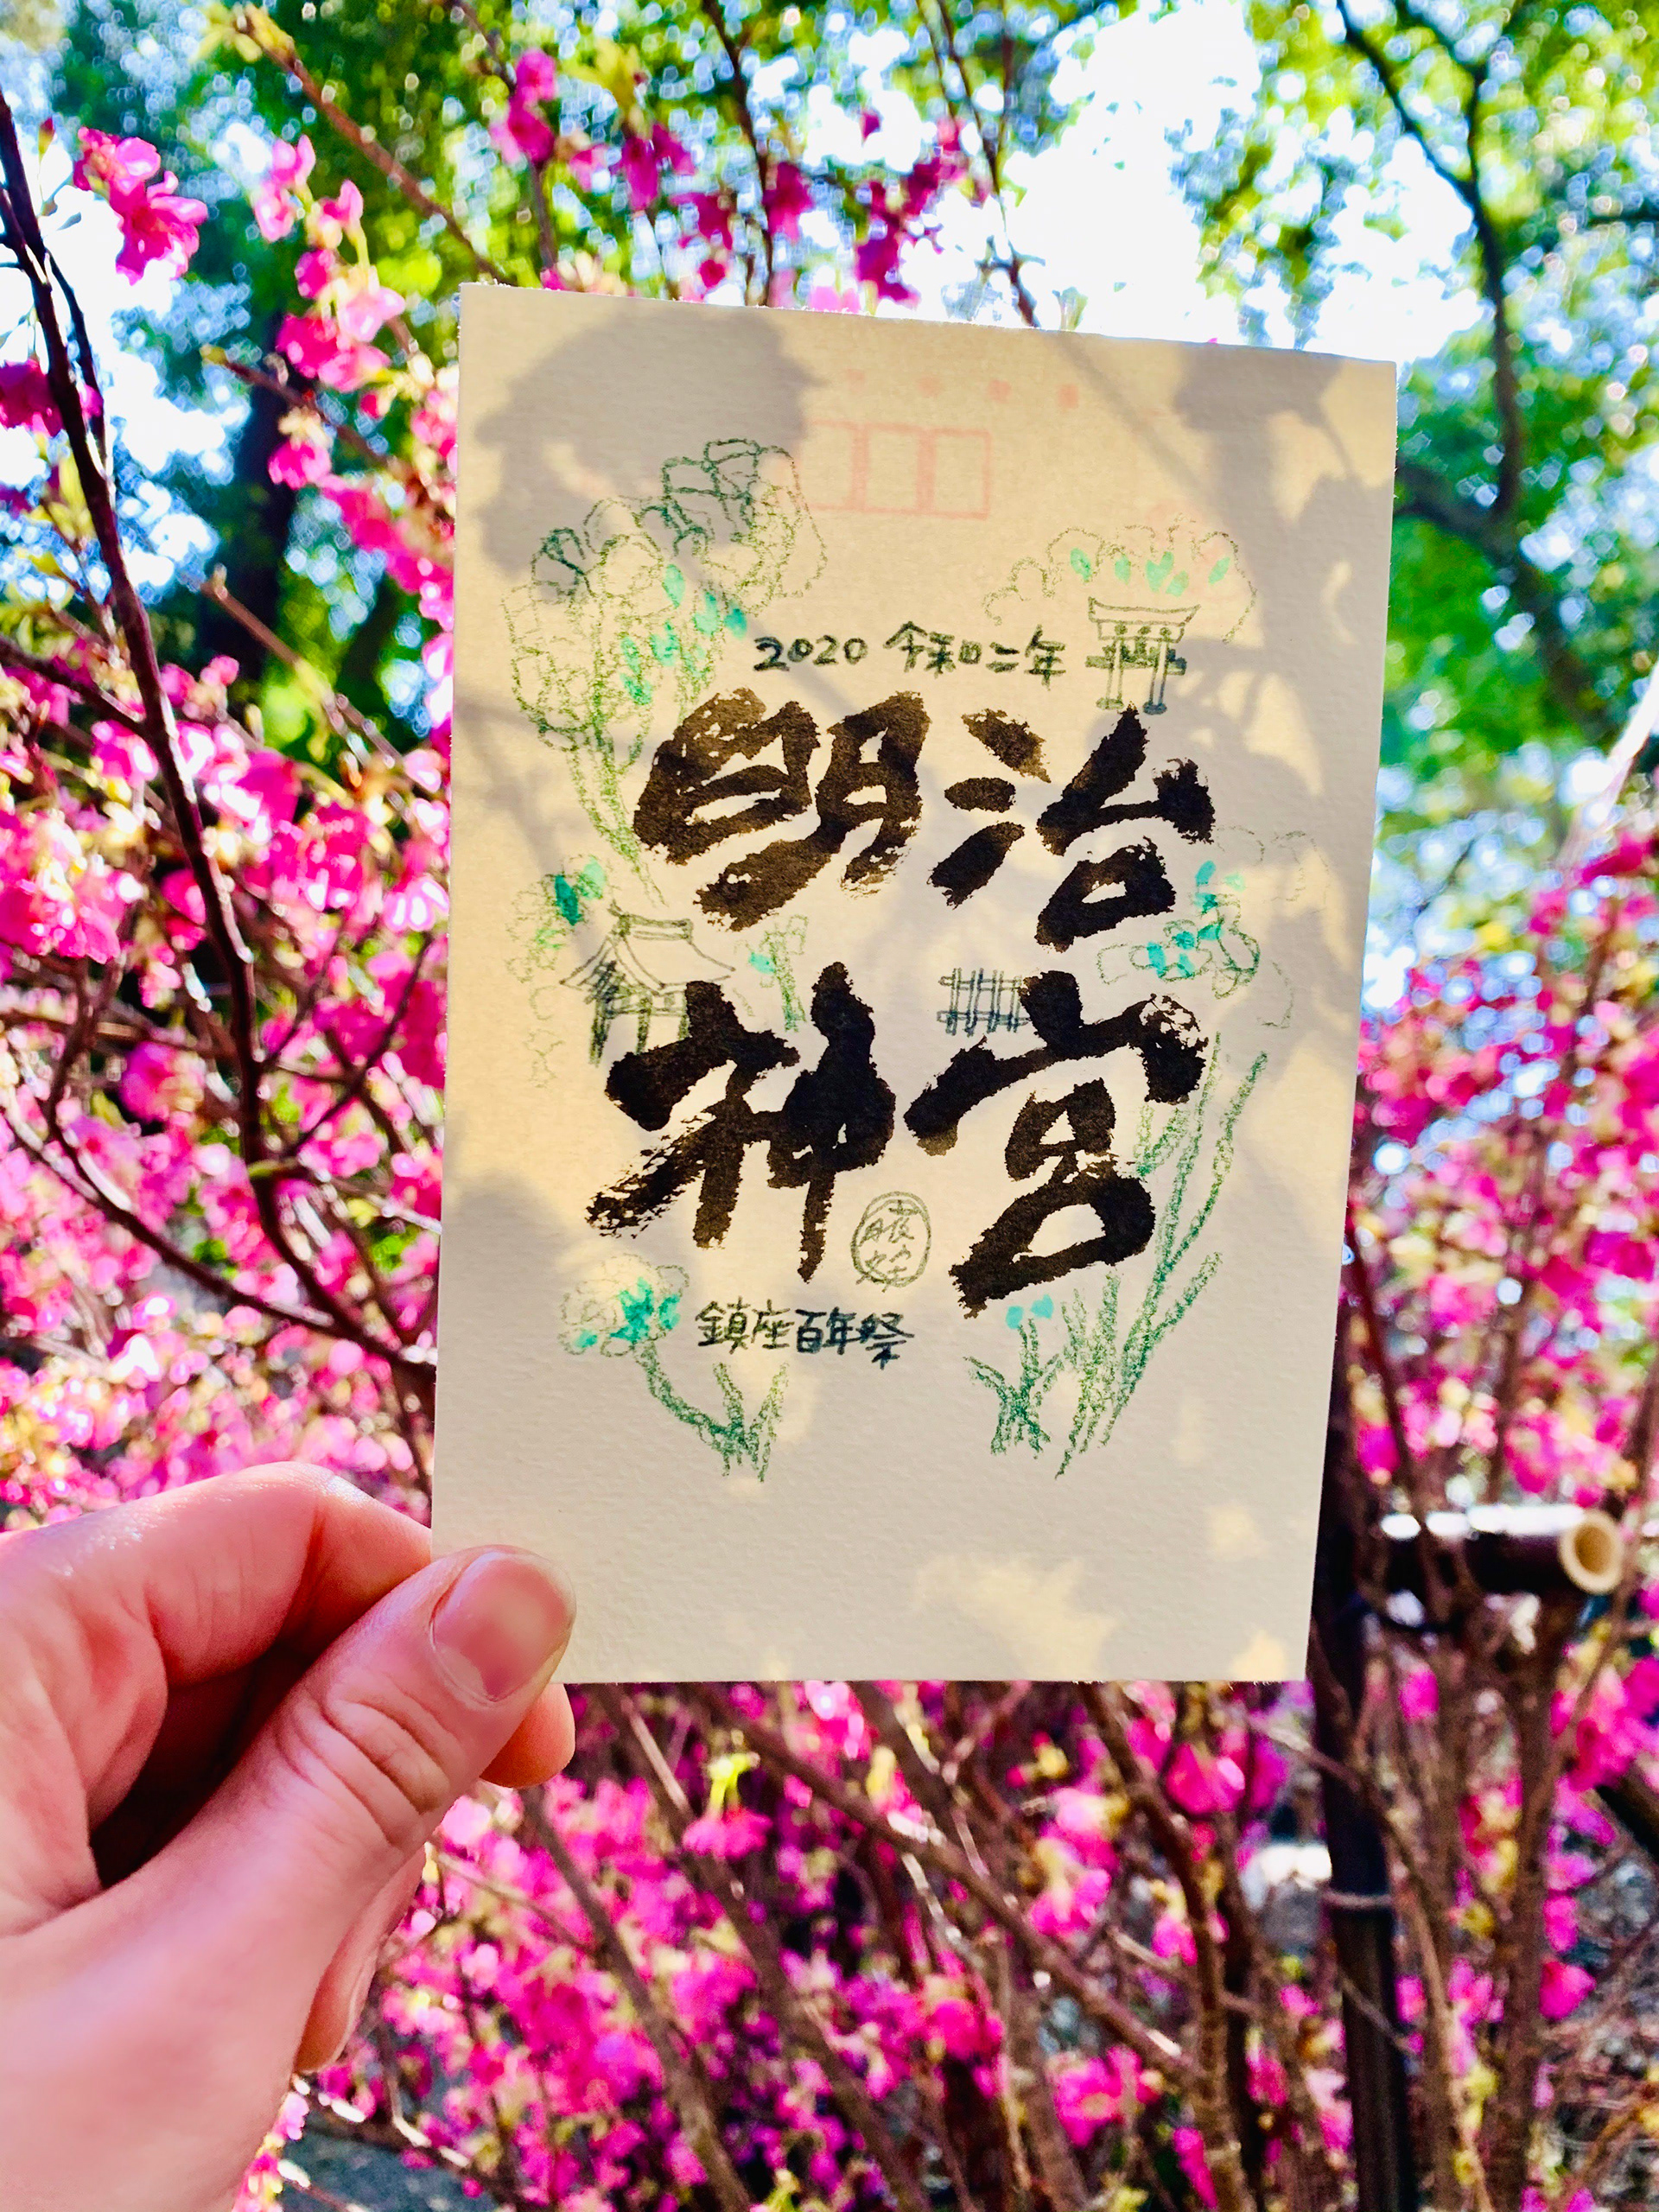 2020 令和二年
明治
神宮
鎮座百年祭